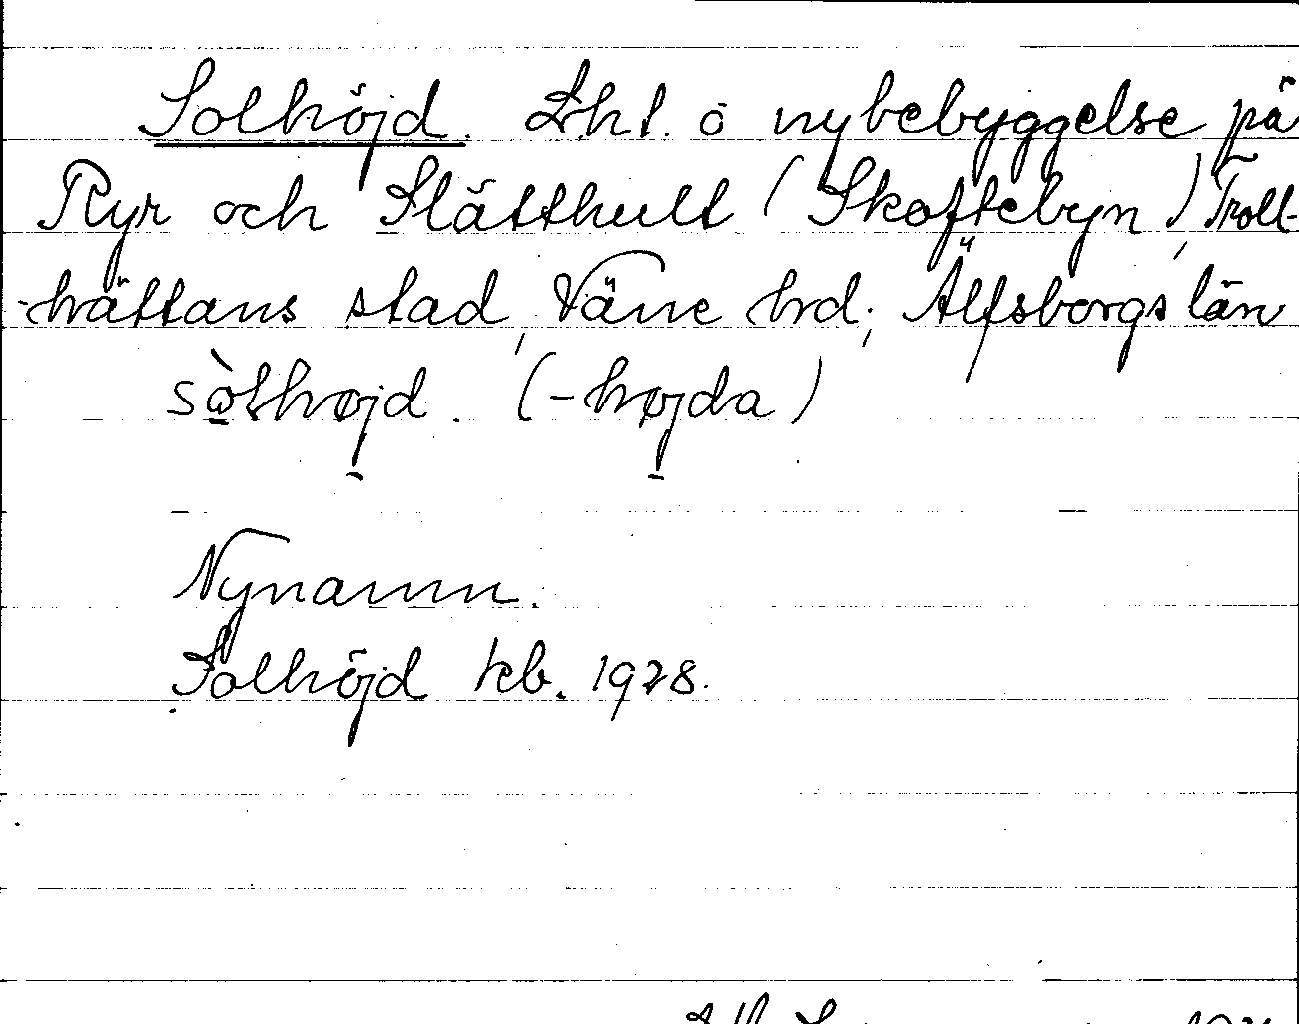 Solhöjd. Lht. o nybebyggelse på
Ryr och Slätthult (Skoftebyn), Troll-
-hättans stad, Väne hrd; Älfsborgs län
sòlhøjd. (-højda)
Nynamn.
Solhöjd kb. 1928.